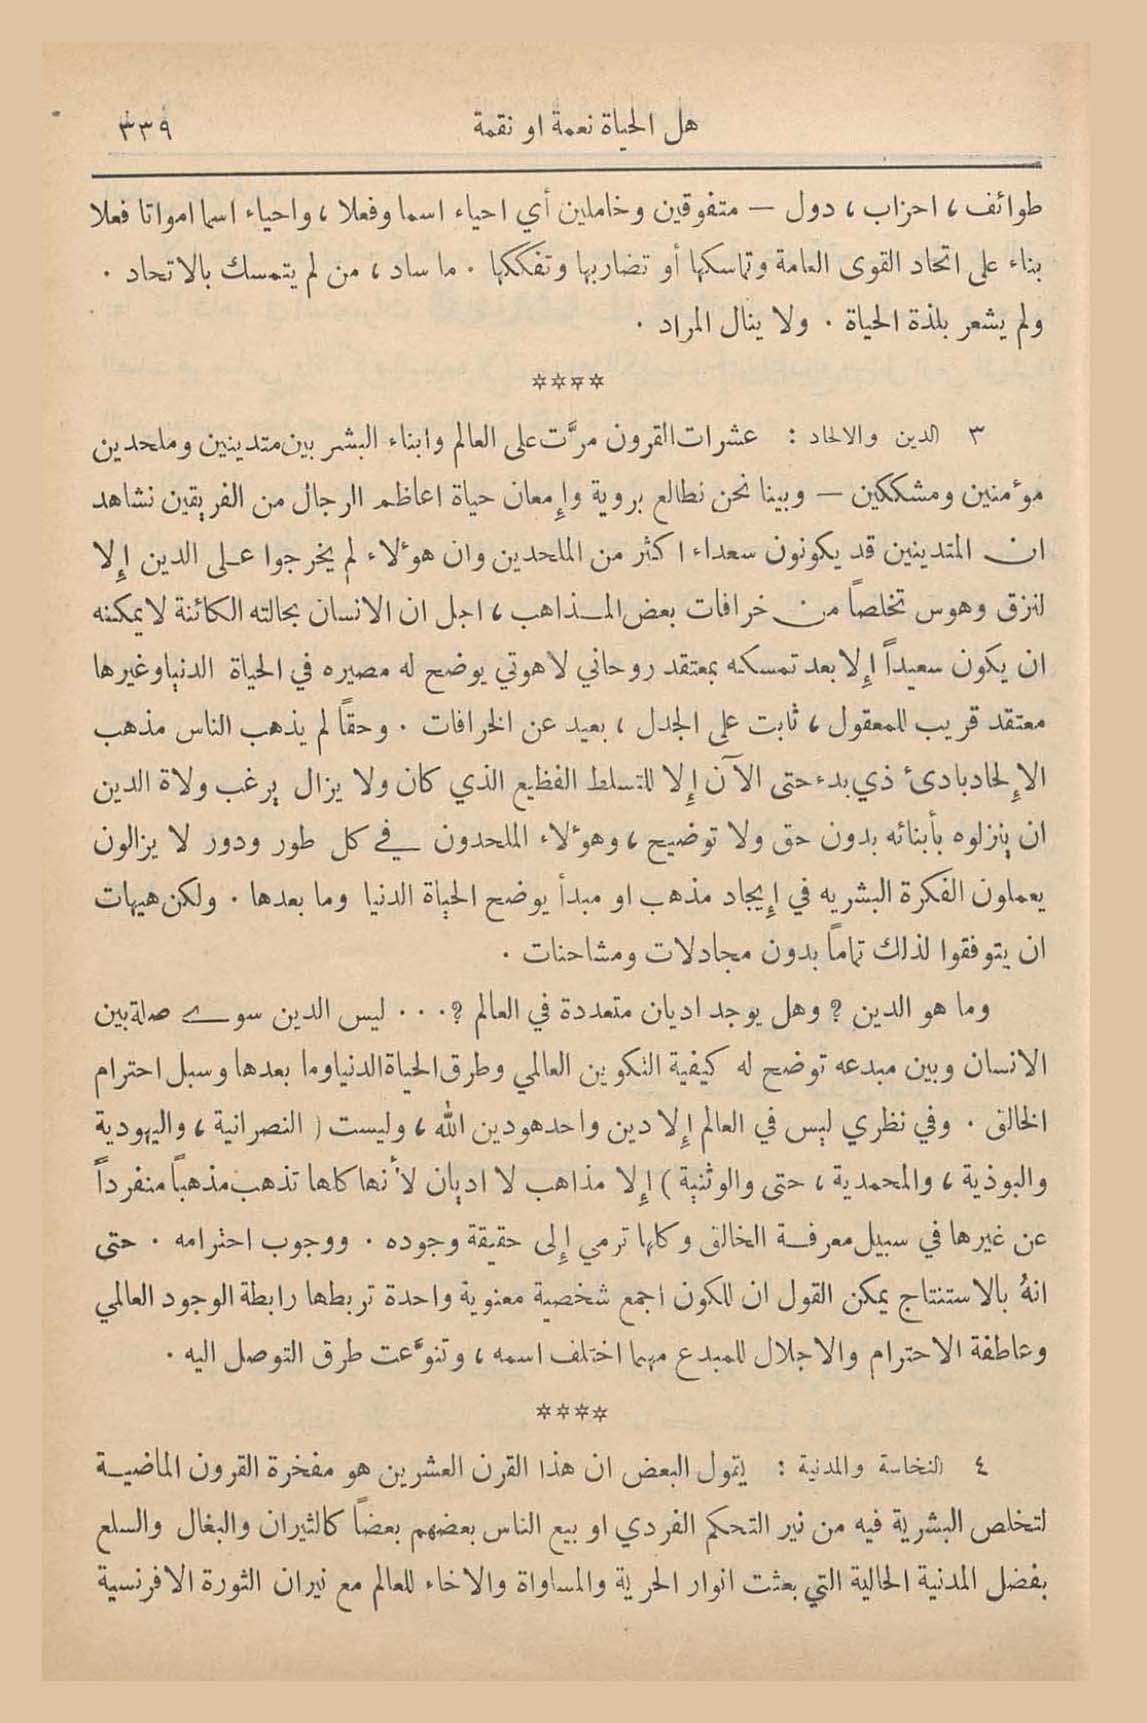 هل الحياة نعمة او نقمة ٣٣٩
طوائف ، احزاب ، دول — متفوقين وخاملين أي احياء اسما وفعلا ، واحياء اسما امواتا فعلا
بناء على اتحاد القوى العامة وتماسكها أو تضاربها وتفككها . ما ساد ، من لم يتمسك بالاتحاد .
ولم يشعر بلذة الحياة . ولا ينال المراد .
****
٣ الدين والالحاد : عشرات القرون مرَّت على العالم وابناء البشر بين متدينين وملحدين
مؤمنين ومشككين — وبينا نحن نطالع بروية وإمعان حياة اعاظم الرجال من الفريقين نشاهد
ان المتدينين قد يكونون سعداء اكثر من الملحدين وان هؤلاء لم يخرجوا على الدين إلا
لنزق وهوس تخلصاً من خرافات بعض المذاهب ، اجل ان الانسان بحالته الكائنة لا يمكنه
ان يكون سعيداً إلا بعد تمسكه بمعتقد روحاني لاهوتي يوضح له مصيره في الحياة الدنيا وغيرها
معتقد قريب للمعقول ، ثابت على الجدل ، بعيد عن الخرافات . وحقاً لم يذهب الناس مذهب
الإلحاد بادئ ذي بدء حتى الآن إلا للتسلط الفظيع الذي كان ولا يزال يرغب ولاة الدين
ان ينزلوه بأبنائه بدون حق ولا توضيح ، وهؤلاء الملحدون في كل طور ودور لا يزالون
يعملون الفكرة البشريه في إيجاد مذهب او مبدأ يوضح الحياة الدنيا وما بعدها . ولكن هيهات
ان يتوفقوا لذلك تماماً بدون مجادلات ومشاحنات .
وما هو الدين ؟ وهل يوجد اديان متعددة في العالم ؟ . . . ليس الدين سوى صلة بين
الانسان وبين مبدعه توضح له كيفية التكوين العالمي وطرق الحياة الدنيا وما بعدها وسبل احترام
الخالق . وفي نظري ليس في العالم إلا دين واحد هو دين الله ، وليست ( النصرانية ، واليهودية
والبوذية ، والمحمدية ، حتى والوثنية ) إلا مذاهب لا اديان لأنها كلها تذهب مذهباً منفرداً
عن غيرها في سبيل معرفة الخالق وكلها ترمي إلى حقيقة وجوده . ووجوب احترامه . حتى
انهُ بالاستنتاج يمكن القول ان للكون اجمع شخصية معنوية واحدة تربطها رابطة الوجود العالمي
وعاطفة الاحترام والاجلال للمبدع مهما اختلف اسمه ، وتنوَّعت طرق التوصل اليه .
****
٤ النخاسة والمدنية : يتمول البعض ان هذا القرن العشرين هو مفخرة القرون الماضية
لتخلص البشرية فيه من نير التحكم الفردي او بيع الناس بعضهم بعضاً كالثيران والبغال والسلع
بفضل المدنية الحالية التي بعثت انوار الحرية والمساواة والاخاء للعالم مع نيران الثورة الافرنسية